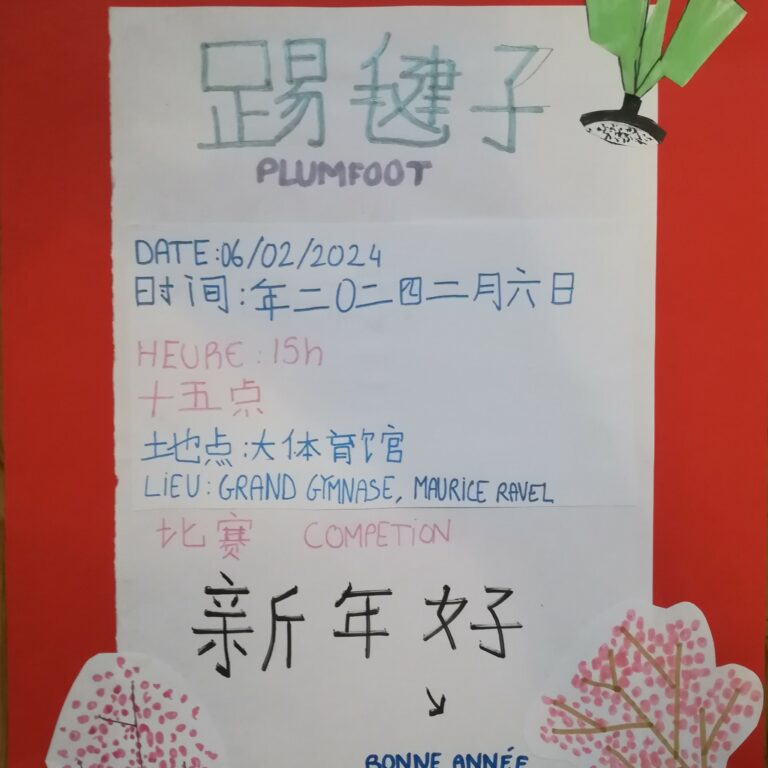 踢毽子
PLUMFOOT
DATE:06/02/2024
时间:年二〇二四二月六日
HEURE:15h
十五点
地点:大体育馆
LIEU: GRAND GYMNASE, MAURICE RAVEL
比赛 COMPETION
新年好
BONNE ANNÉE